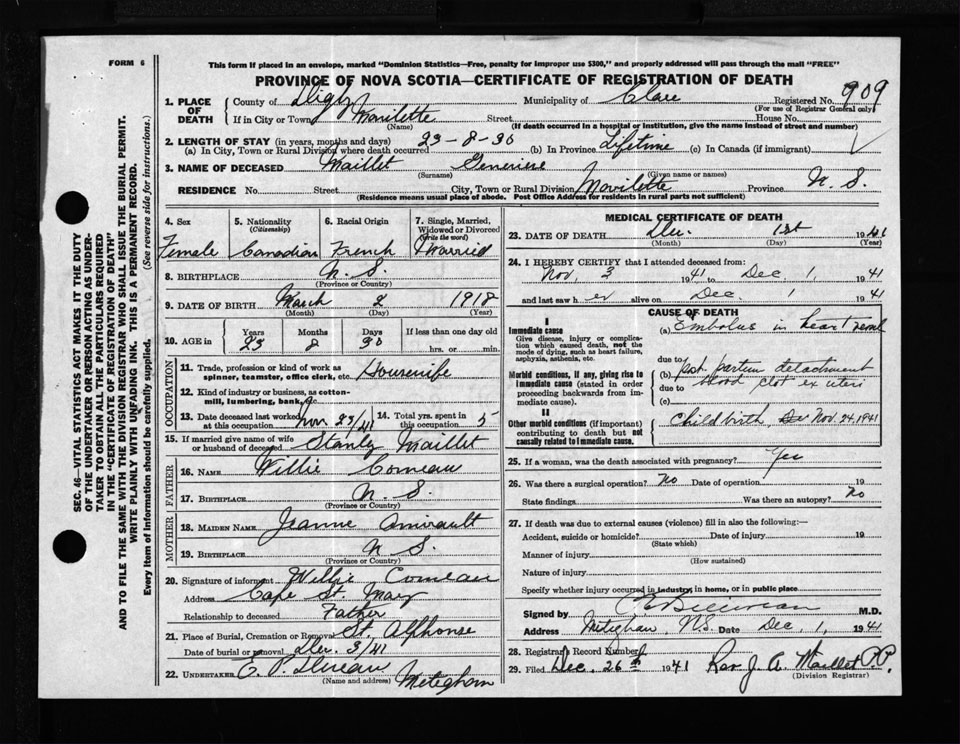 FORM 6
This form if placed in an envelope, marked "Dominion Statistics—Free, penalty for improper use $300," and properly addressed will pass through the mail "FREE"
PROVINCE OF NOVA SCOTIA—CERTIFICATE OF REGISTRATION OF DEATH
1. PLACE OF DEATH
County of Digby Municipality of Clare Registered No. 909
(For use of Registrar General only)
If in City or Town Mavilette Street House No.
(Name) (If death occurred in a hospital or institution, give the name instead of street and number)
2. LENGTH OF STAY (in years, months and days) 23-8-30
(a) In City, Town or Rural Division where death occurred (b) In Province Lifetime (c) In Canada (if immigrant)
3. NAME OF DECEASED Maillet Genevieve
(Surname) (Given name or names)
RESIDENCE No. Street City, Town or Rural Division Mavilette Province N. S.
(Residence means usual place of abode. Post Office Address for residents in rural parts not sufficient)
4. Sex Female
5. Nationality (Citizenship) Canadian
6. Racial Origin French
7. Single, Married, Widowed or Divorced (Write the word) Married
8. BIRTHPLACE N. S.
(Province or Country)
9. DATE OF BIRTH March 2 1918
(Month) (Day) (Year)
10. AGE in Years 23 Months 8 Days 30 If less than one day old hrs. or min.
OCCUPATION
11. Trade, profession or kind of work as spinner, teamster, office clerk, etc. Housewife
12. Kind of industry or business, as cotton-mill, lumbering, bank, etc.
13. Date deceased last worked at this occupation Nov 23/41
14. Total yrs. spent in this occupation 5
15. If married give name of wife or husband of deceased Stanley Maillet
FATHER
16. NAME Willie Comeau
17. BIRTHPLACE N. S.
(Province or Country)
MOTHER
18. MAIDEN NAME Jeanne Amirault
19. BIRTHPLACE N. S.
(Province or Country)
20. Signature of informant Willie Comeau
Address Cape St. Mary
Relationship to deceased Father
21. Place of Burial, Cremation or Removal St. Alphonse
Date of burial or removal Dec. 3/41
22. UNDERTAKER E. P.
(Name and address) Meteghan
MEDICAL CERTIFICATE OF DEATH
23. DATE OF DEATH Dec. 1st 1941
(Month) (Day) (Year)
24. I HEREBY CERTIFY that I attended deceased from:
Nov. 3 1941 to Dec. 1 1941
and last saw h er alive on Dec. 1 1941
CAUSE OF DEATH
I
Immediate cause
Give disease, injury or complication which caused death, not the mode of dying, such as heart failure, asphyxia, asthenia, etc.
(a) Embolus in heart
due to
Morbid conditions, if any, giving rise to immediate cause (stated in order proceeding backwards from immediate cause).
(b) post partum detachment
due to blood clot ex uteri
(c)
II
Other morbid conditions (if important) contributing to death but not causally related to immediate cause.
Childbirth Nov. 24, 1941
25. If a woman, was the death associated with pregnancy? Yes
26. Was there a surgical operation? No Date of operation 19
State findings Was there an autopsy? No
27. If death was due to external causes (violence) fill in also the following:—
Accident, suicide or homicide? Date of injury 19
(State which)
Manner of injury
(How sustained)
Nature of injury
Specify whether injury occurred in industry, in home, or in public place
Signed by M.D.
Address Meteghan, N.S. Date Dec. 1, 1941
28. Registrar's Record Number
29. Filed Dec. 26th 1941 Rev. J. A. Maillet P.P.
(Division Registrar)
SEC. 46—VITAL STATISTICS ACT MAKES IT THE DUTY OF THE UNDERTAKER OR PERSON ACTING AS UNDERTAKER TO OBTAIN ALL THE PARTICULARS REQUIRED IN THE "CERTIFICATE OF REGISTRATION OF DEATH"
AND TO FILE THE SAME WITH THE DIVISION REGISTRAR WHO SHALL ISSUE THE BURIAL PERMIT.
WRITE PLAINLY WITH UNFADING INK. THIS IS A PERMANENT RECORD.
Every item of information should be carefully supplied. (See reverse side for instructions.)